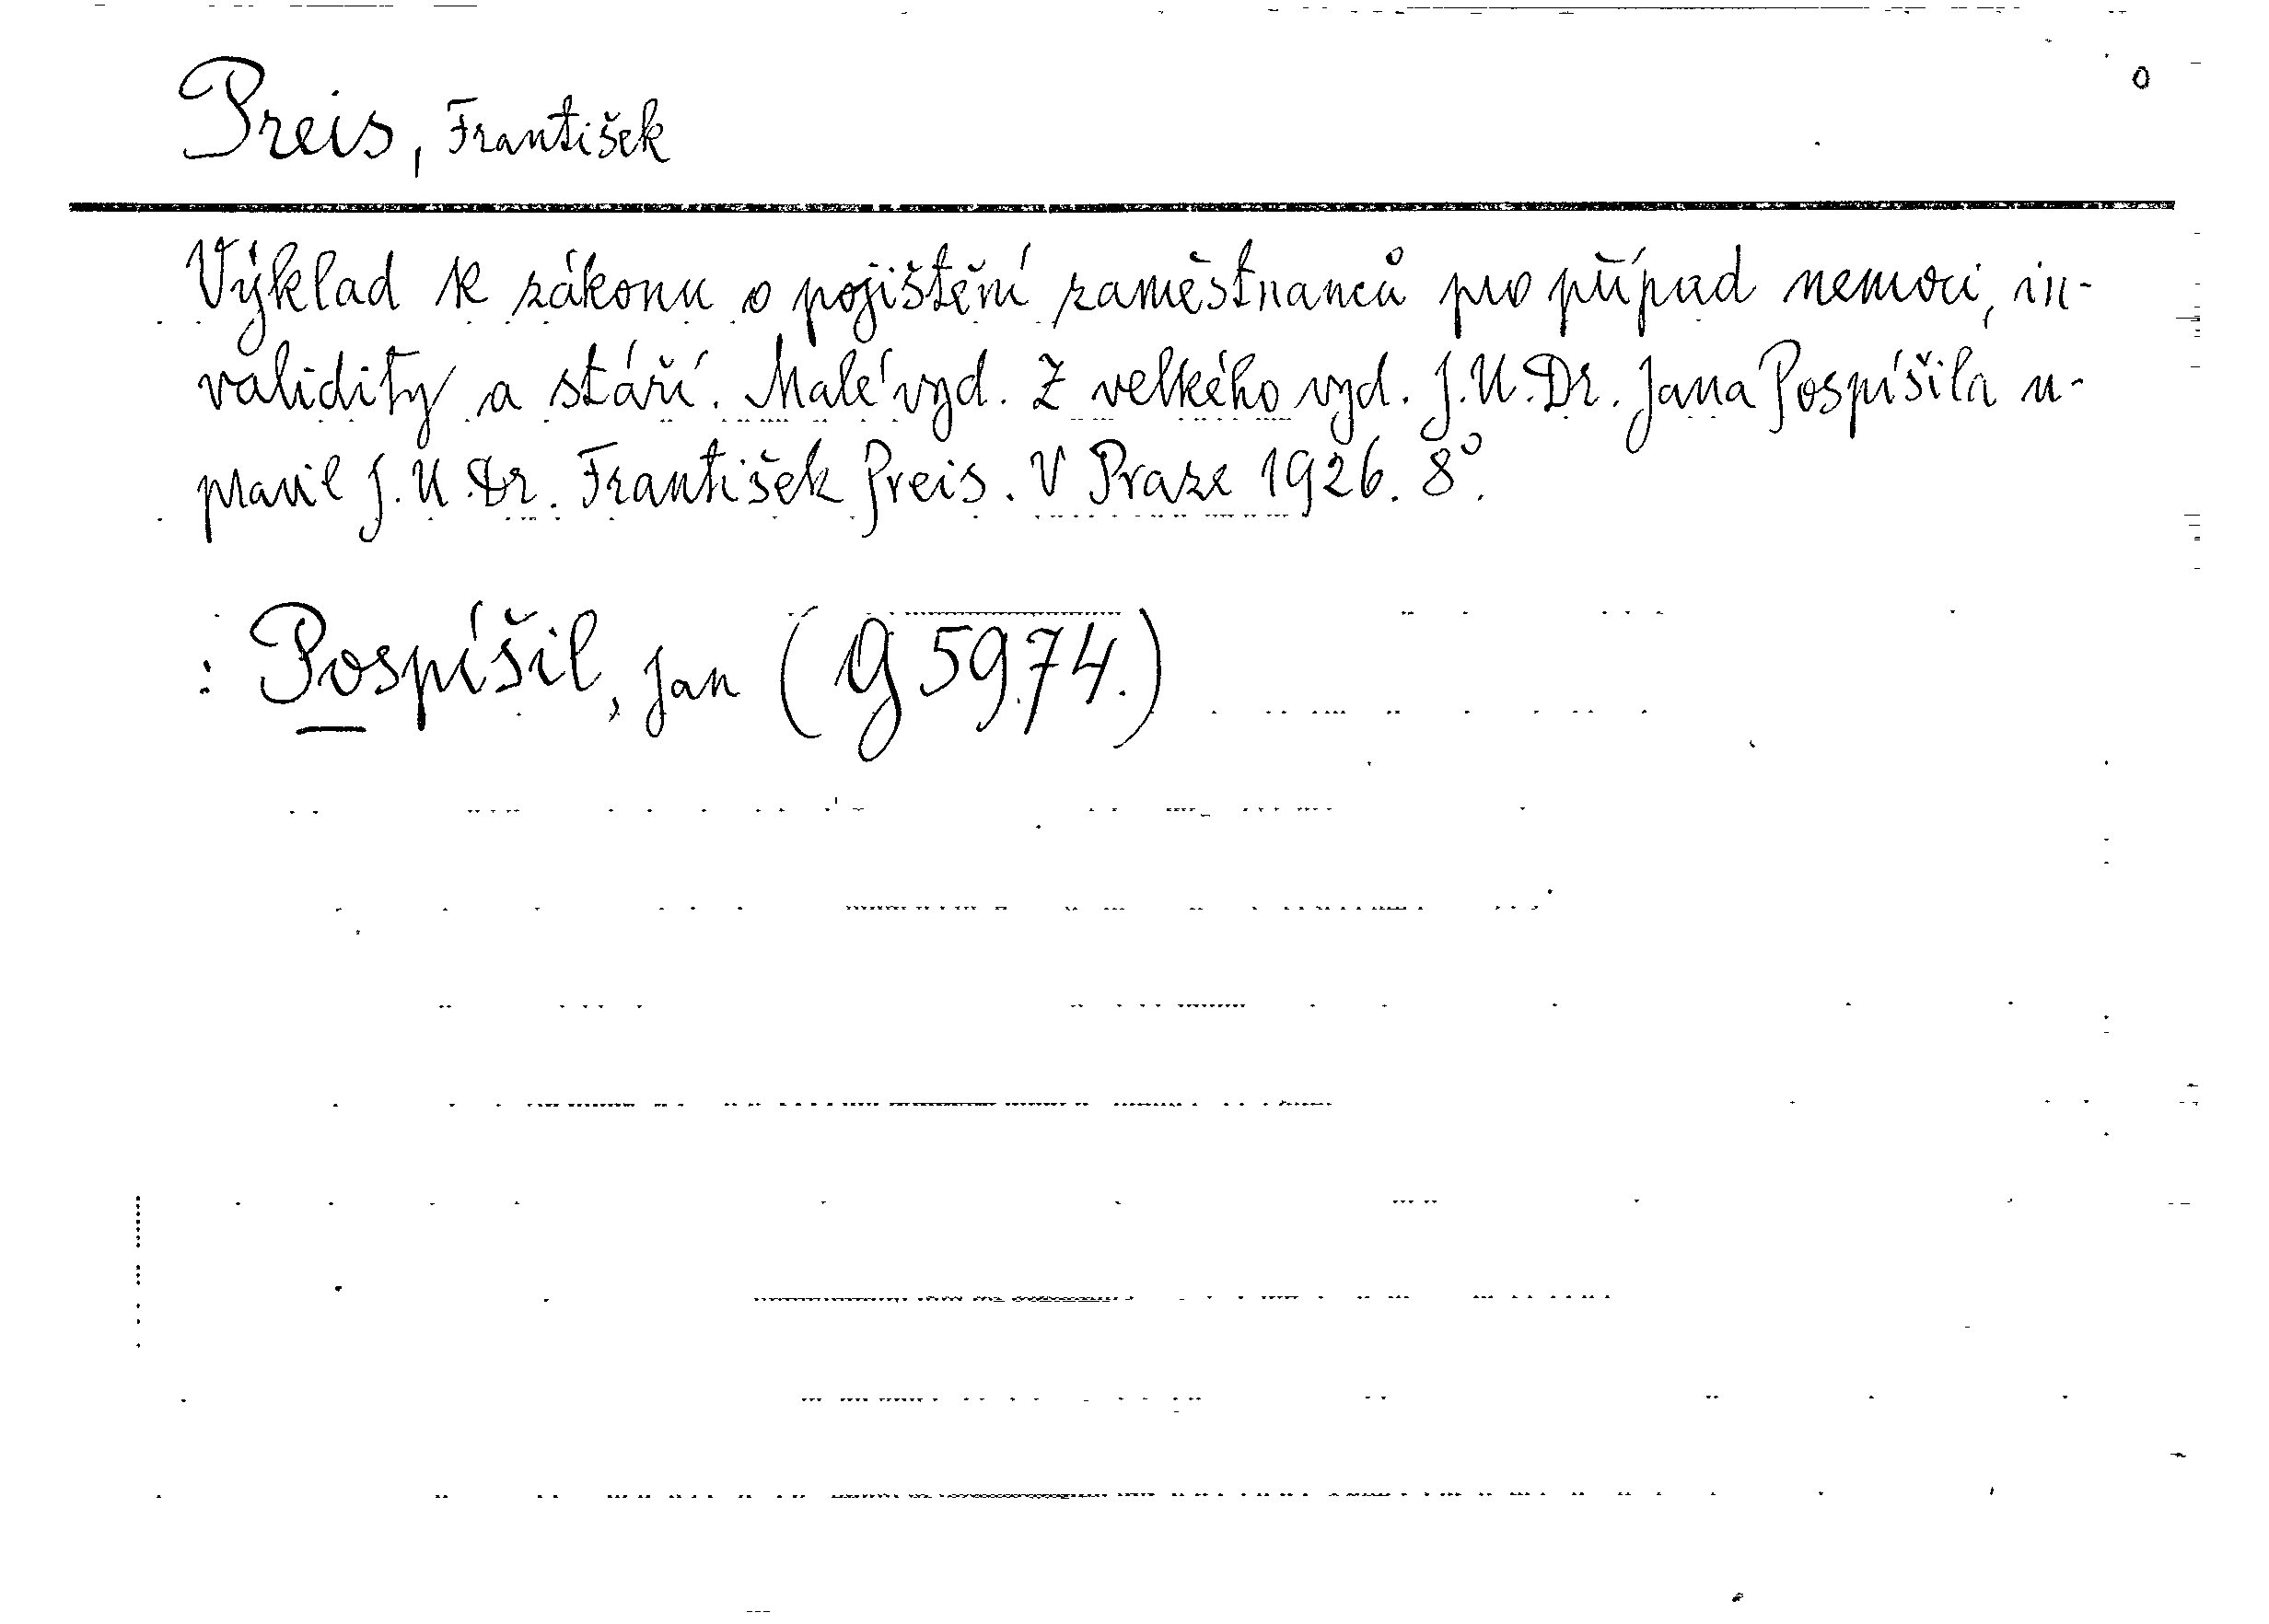 Preis, František
Výklad k zákonu o pojištění zaměstnanců pro případ nemoci, in-
validity a stáří. Malé vyd. Z velkého vyd. J.U.Dr. Jana Pospíšila u-
pravil J.U.Dr. František Preis. V Praze 1926. 8°.
: Pospíšil, Jan (G 5974.)